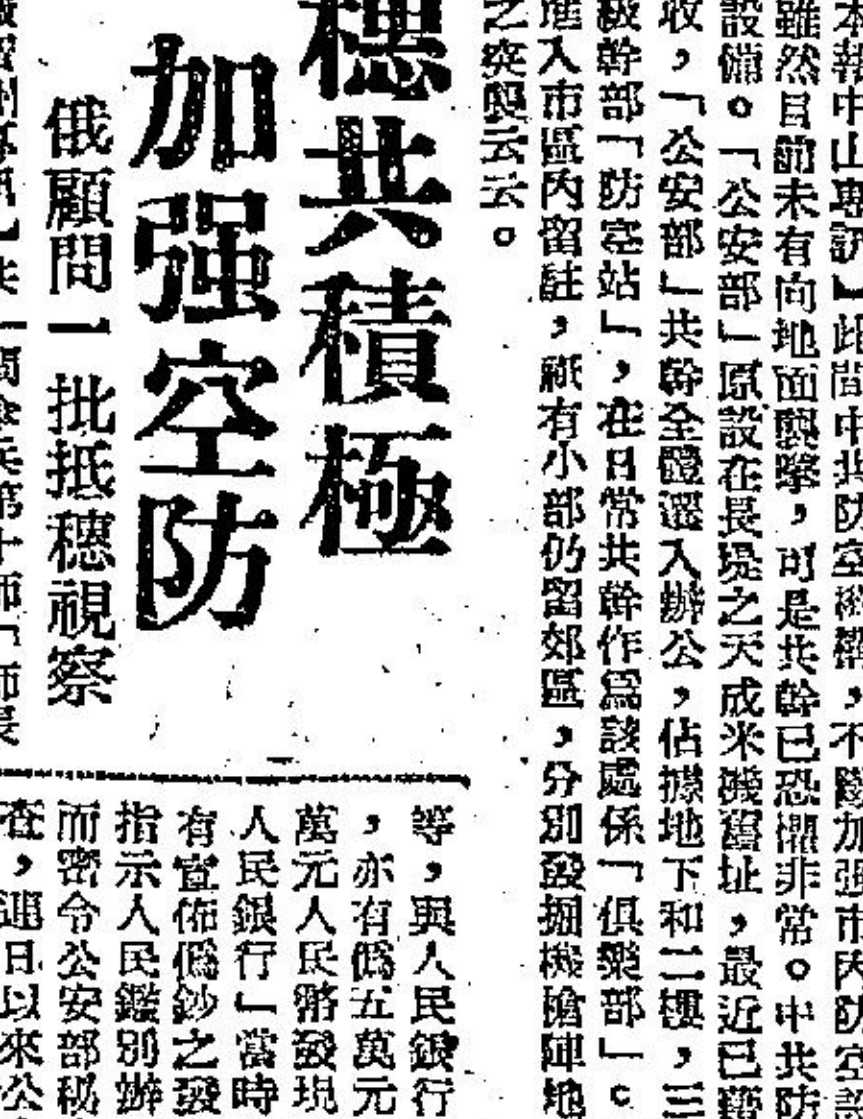 本報中山專訊】此間中共防空機構，不斷加強市內防空設
雖然目前未有向地面襲擊，可是共幹已恐懼非常。中共防
設備。「公安部」原設在長堤之天成米機舊址，最近已
收，「公安部」共幹全體遷入辦公，佔據地下和二樓，三
級幹部「防空站」，在日常共幹作爲該處係「俱樂部」。
進入市區內留駐，祇有小部仍留郊區，分別發掘機槍陣地
之突襲云云。
穗共積極
加强空防
俄顧問一批抵穗視察
等，與人民銀行
，亦有僞五萬元
萬元人民幣發現
人民銀行」當時
有宣佈僞鈔之發
指示人民鑑別辦
而密令公安部秘
查，連日以來公